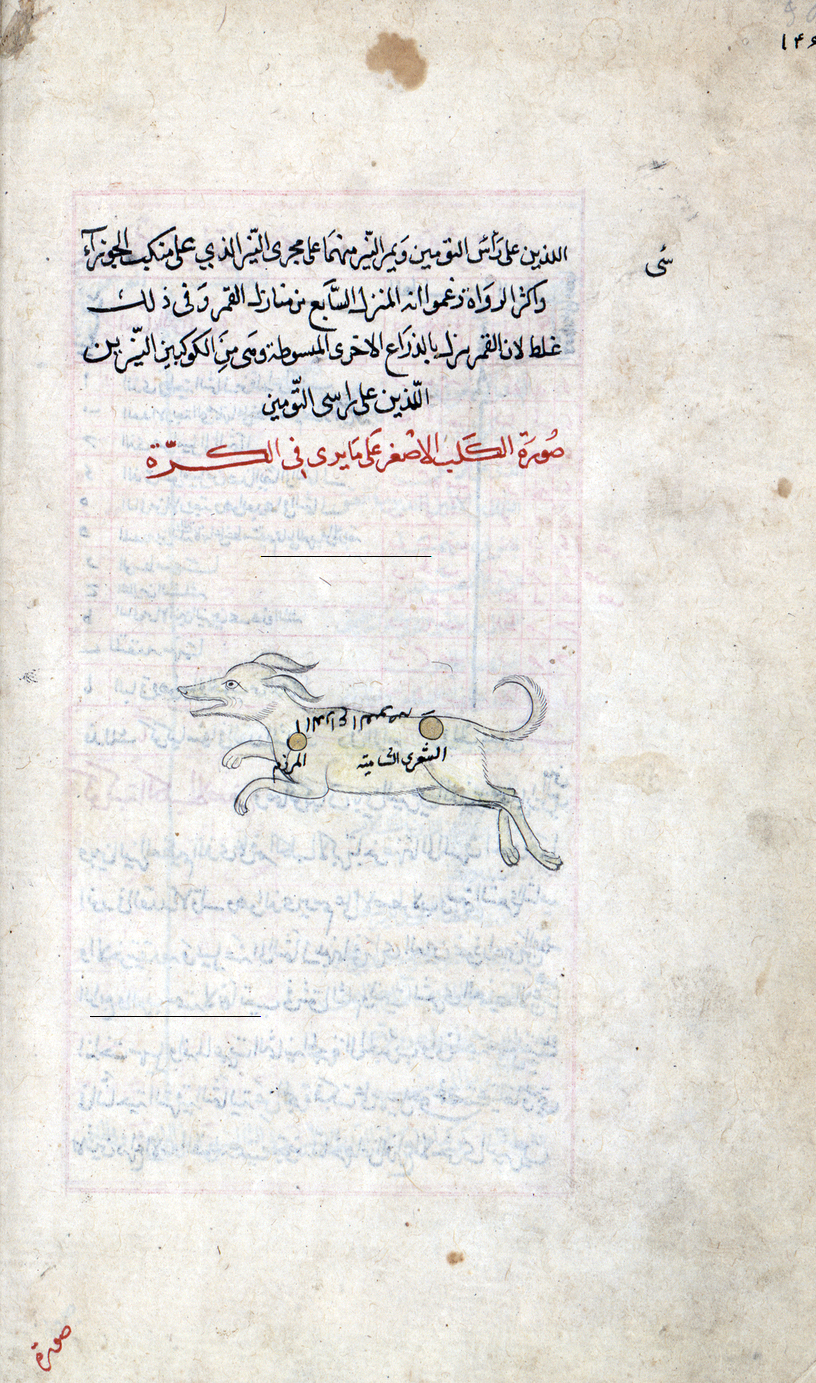 ١۴
اللذين على رأس التومين ويمر النير منهما على مجرى النير الذي على منكب الجوزآء
شى
واكثر الرواة زعموا انه المنزل السابع من منازل القمر وفى ذلك
غلط لان القمر ينزل بالذراع الاخرى المبسوطة وهى من الكوكبين النيّرين
اللّذين على راسى التّومين
صورة الكلب الاصغر على ما يرى فى الكرّة
الذراع
الشعرى الشامية
المرزم
صورة